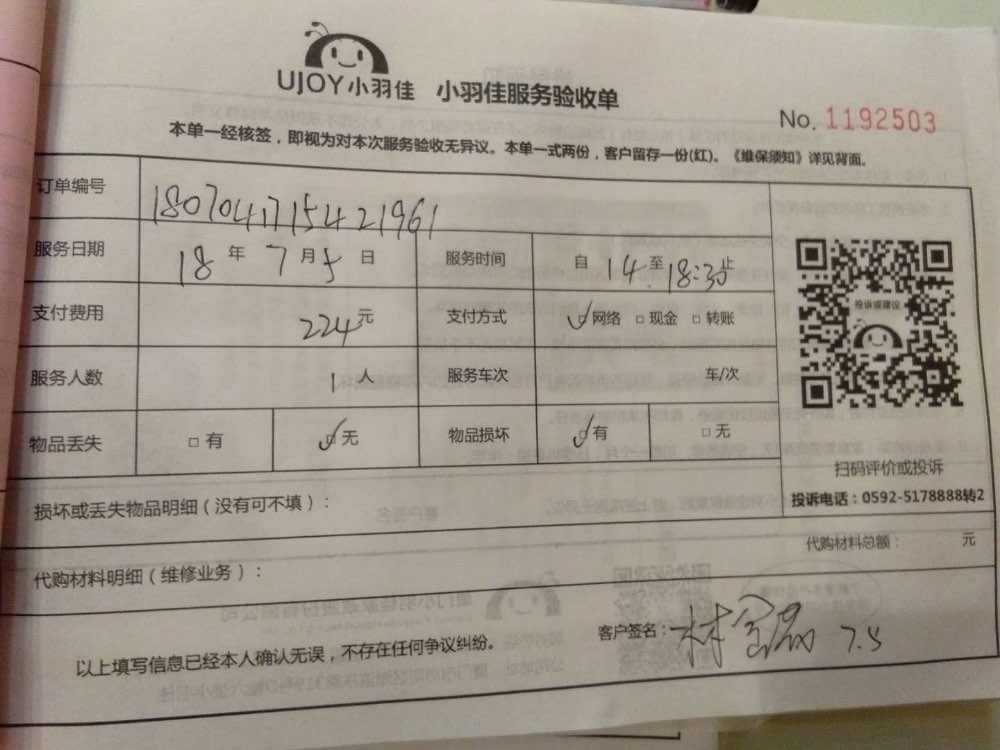 UJOY小羽佳 小羽佳服务验收单
No. 1192503
本单一经核签，即视为对本次服务验收无异议。本单一式两份，客户留存一份(红)。《维保须知》详见背面。
订单编号 1807041715421961
服务日期 18 年 7 月 5 日 服务时间 自 14 至 18:30 止
投诉或建议
支付费用 224 元 支付方式 ☑网络 □现金 □转账
服务人数 1 人 服务车次 车/次
物品丢失 □有 ☑无 物品损坏 ☑有 □无
扫码评价或投诉
投诉电话：0592-5178888转2
损坏或丢失物品明细（没有可不填）：
代购材料总额： 元
代购材料明细（维修业务）：
客户签名： 林 7.5
以上填写信息已经本人确认无误，不存在任何争议纠纷。